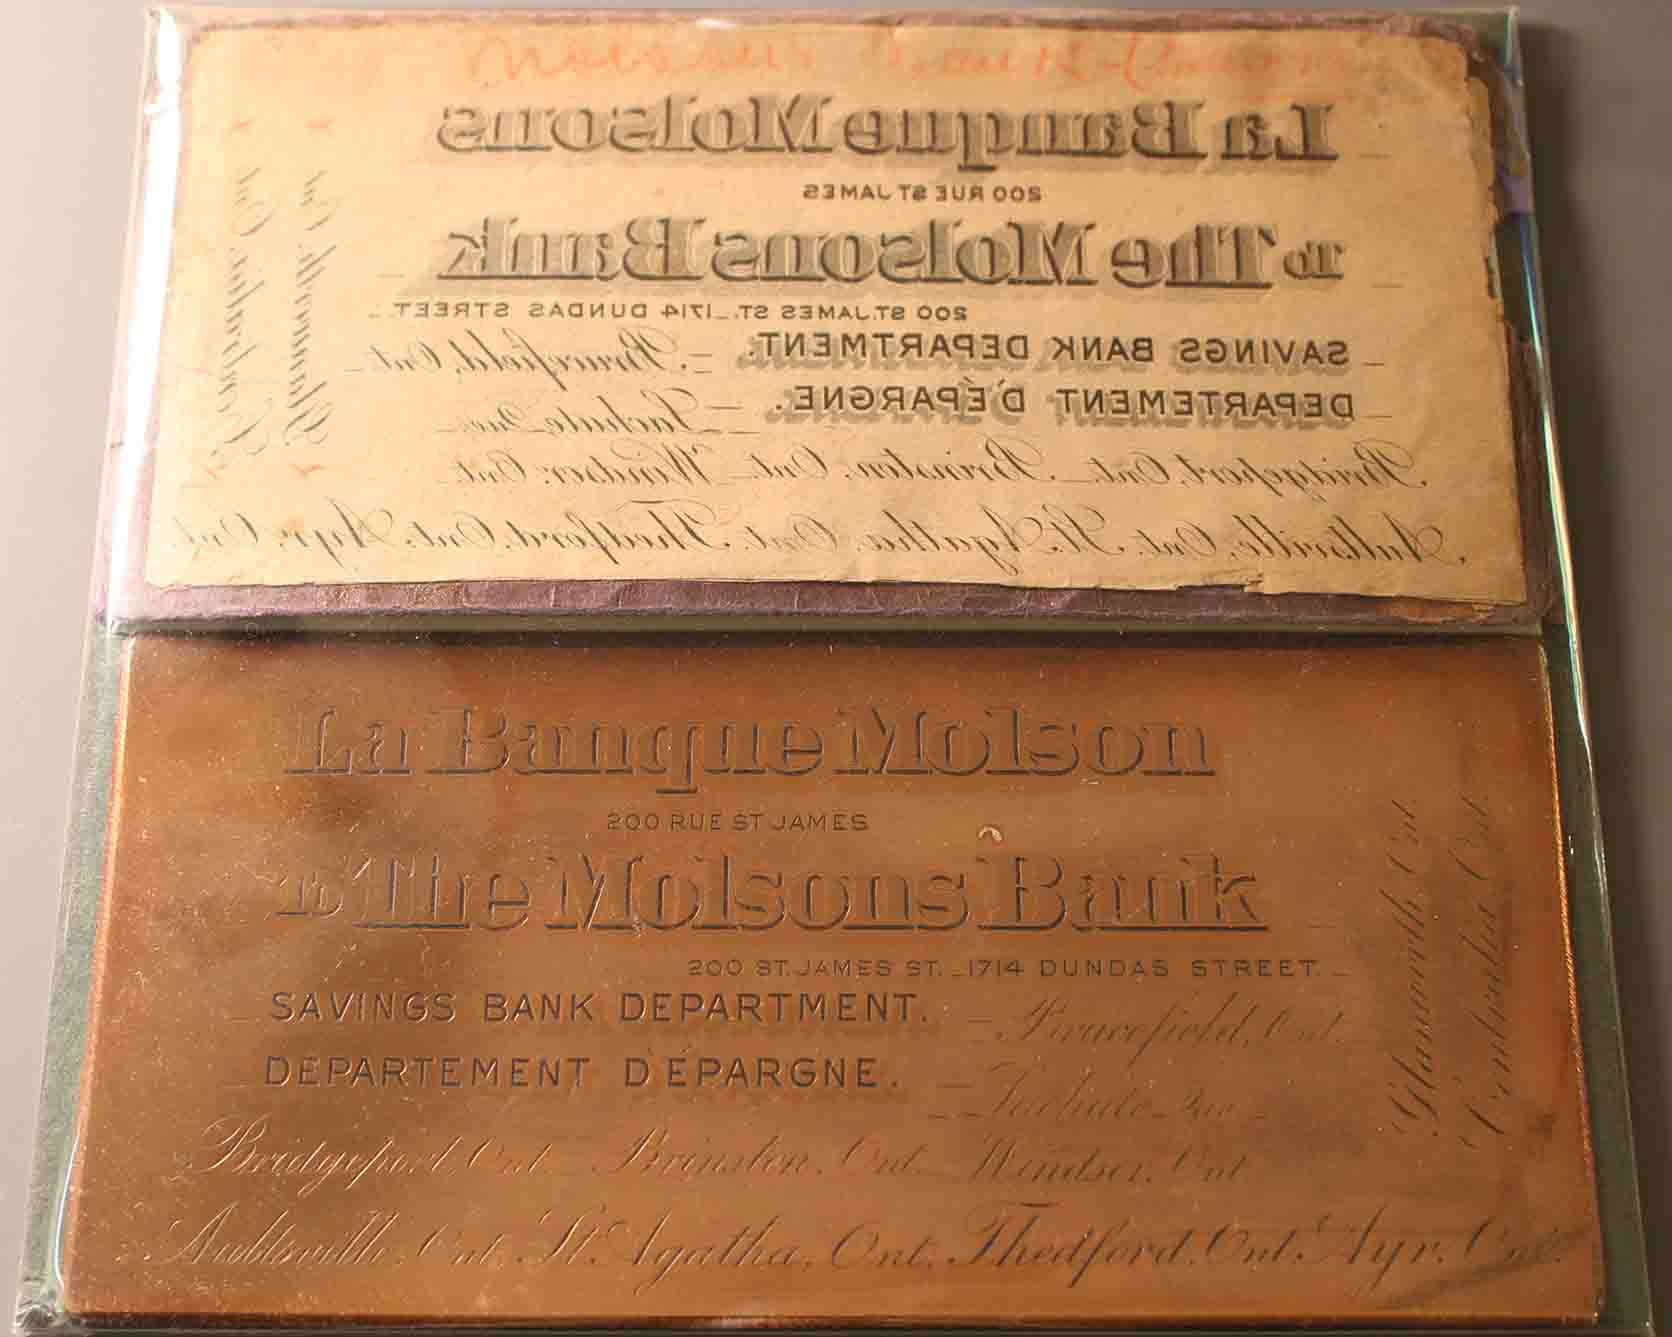 Molsons Bank
La Banque Molsons
200 RUE ST JAMES
To The Molsons Bank
200 ST. JAMES ST. _ 1714 DUNDAS STREET. _
_ SAVINGS BANK DEPARTMENT. _ Brucefield, Ont. _
_ DEPARTEMENT D'ÉPARGNE. _ Lachute, Que. _
Bridgeport, Ont. _ Brinston, Ont. _ Windsor, Ont.
Aultsville, Ont. St. Agatha, Ont. Thedford, Ont. Ayr, Ont.
La Banque Molson
200 RUE ST JAMES
To The Molsons Bank _
200 ST. JAMES ST. _ 1714 DUNDAS STREET. _
_ SAVINGS BANK DEPARTMENT. _ Brucefield, Ont. _
_ DEPARTEMENT D'ÉPARGNE. _ Lachute, Que. _
Bridgeport, Ont. _ Brinston, Ont. _ Windsor, Ont.
Aultsville, Ont. St. Agatha, Ont. Thedford, Ont. Ayr, Ont.
Glasworth Ont.